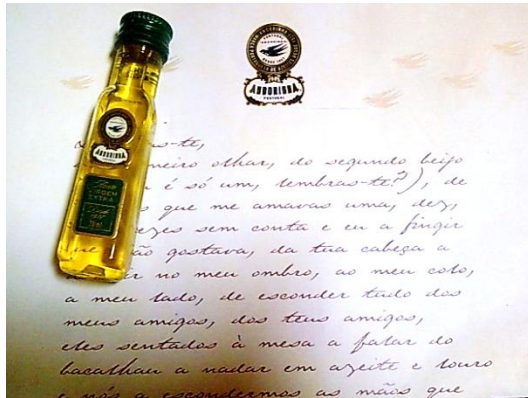 ANDORINHA
PORTUGAL
ANDORINHA
VIRGEM
EXTRA
s-te,
meiro olhar, do segundo beijo
é só um, lembras-te?), de
s que me amavas uma, dez,
ezes sem conta e eu a fingir
ue não gostava, da tua cabeça a
er no meu ombro, ao meu colo,
a meu lado, de esconder tudo dos
meus amigos, dos teus amigos,
eles sentados à mesa a falar do
bacalhau a nadar em azeite e louro
e nós a escondermos as mãos que